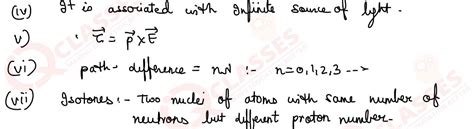 (iv) It is associated with Infinite source of light.
v) τ⃗ = p⃗ × E⃗
(vi) path- difference = nλ :- n=0,1,2,3 ---
(vii) Isotones :- Two nuclei of atoms with same number of
neutrons but different proton number.